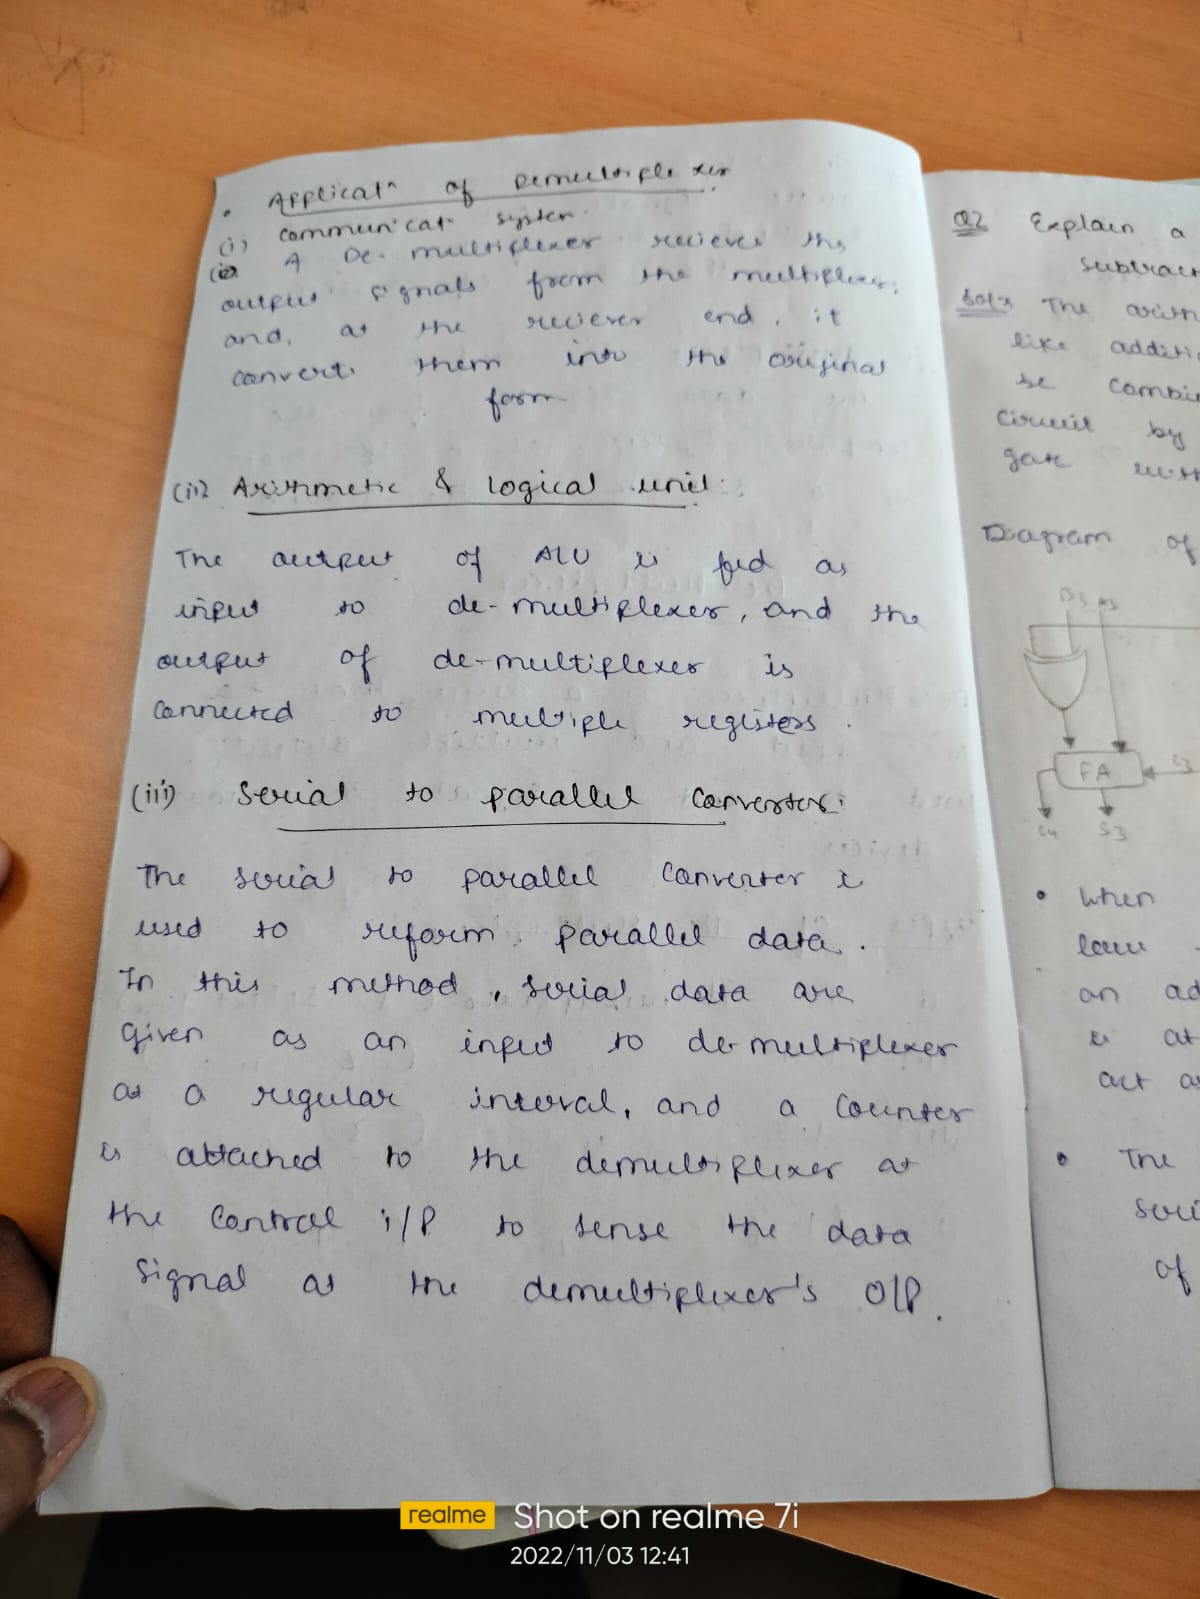 • Applicatⁿ of Demultiplexer
(i) communicatⁿ system.
A De-multiplexer recieves the
output signals from the multiplexer,
and, at the reciever end, it
converts them into the original
form
(ii) Arithmetic & logical unit:
The output of ALU is fed as
input to de-multiplexer, and the
output of de-multiplexer is
connected to multiple registers.
(iii) Serial to parallel converter:
The serial to parallel converter is
used to reform parallel data.
In this method, serial data are
given as an input to de-multiplexer
at a regular interval, and a counter
is attached to the demultiplexer at
the control i/P to sense the data
signal at the demultiplexer's O/P.
Q2 Explain a
subtract
Solⁿ The arith
like additi
be combin
circuit by
gate with
Diagram of
FA C3
C4 S3
• When
low
an ad
is at
act as
• The
seri
of
realme Shot on realme 7i
2022/11/03 12:41